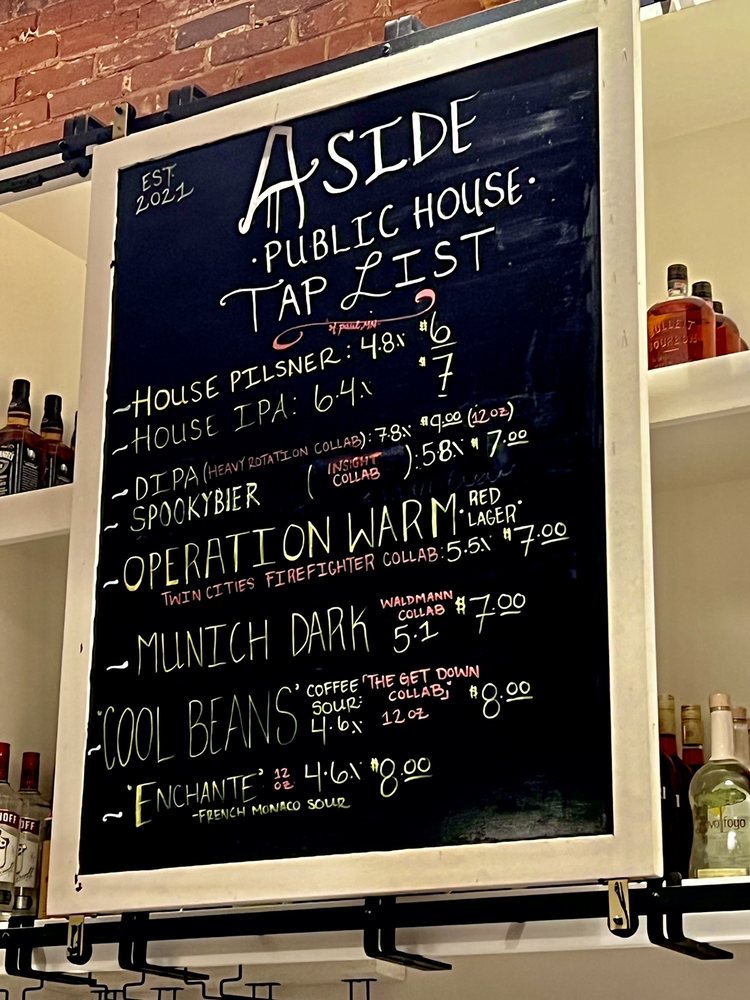 EST.
2021
ASIDE
·PUBLIC HOUSE·
TAP LIST
~HOUSE PILSNER: 4.8% $6
~HOUSE IPA: 6.4% $7
~DIPA (HEAVY ROTATION COLLAB): 7.8% $9.00 (12oz)
~SPOOKYBIER (INSIGHT COLLAB): 5.8% $7.00
~OPERATION WARM·RED LAGER·
TWIN CITIES FIREFIGHTER COLLAB: 5.5% $7.00
~MUNICH DARK WALDMANN COLLAB 5.1 $7.00
~"COOL BEANS" COFFEE SOUR: 4.6% "THE GET DOWN COLLAB" 12oz $8.00
~'ENCHANTE' 12 oz 4.6% $8.00
-FRENCH MONACO SOUR
BULLEIT
BOURBON
novo fogo